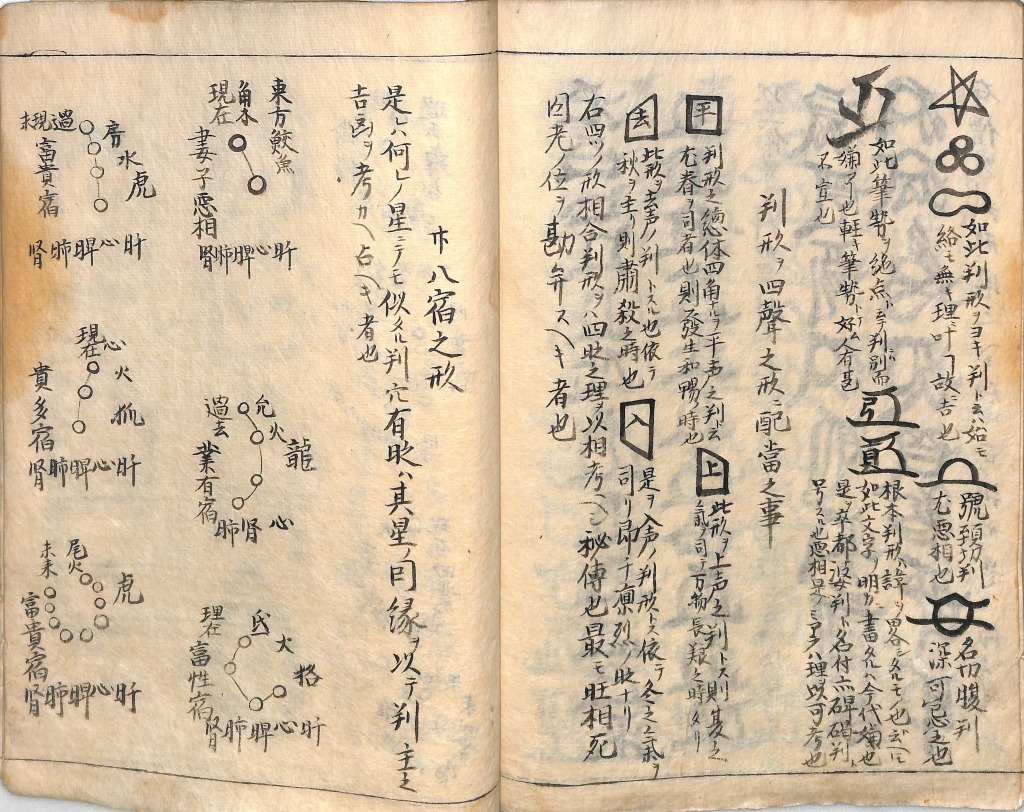 如此判形ヲヨキ判ト云ハ始モ
終モ無キ理ニ叶フ故ニ吉也
號頚切判
尤悪相也
名切腹判
深可忌之也
如此筆勢ヲ絶点ト云テ判別而
嫌フ也軽キ筆勢ト好ム人有甚
不宜也
引
頁
根本判形ハ諱ヲ畧シタルモノ也
如此文字ノ明カニ書タルハ今代嫌也
是ヲ卒都婆判ト名付亦碑碣判
号スル也悪相是ノミナラス理以可考也
判形ヲ四聲之形ニ配當之事
平
判形之總体四角ナルヲ平声之判ト云
尤春ヲ司者也則發生和暢ノ時也
上
此形ヲ上声之判トス則夏之
氣ヲ司テ万物長養之時タリ
去
此形ヲ去声ノ判トスル也依テ
秋ヲ主リ則肅殺之時也
入
是ヲ入声ノ判形トス依テ冬之氣ヲ
司リ昴十凛烈ノ時ナリ
右四ツノ形相合判形ヲハ四時之理ヲ以相考ヘシ秘ノ傳也最モ旺相死
囚老ノ位ヲ勘弁スヘキ者也
廾八宿之形
是ハ何ヒノ星ニテモ似タル判穴有時ハ其星ノ因縁ヲ以テ判主之
吉凶ヲ考カヘ占ヘキ者也
東方鮫魚
角木
現在
妻子悪相
腎肺脾心肝
龍
亢火
過去
業有宿
肺腎心
氐
犬
格
現在
富性宿
腎肺脾心肝
房水虎
過現未
富貴宿
腎肺脾心肝
心火狐
現在
貴多宿
腎肺脾心肝
虎
尾火
未来
富貴宿
腎肺脾心肝